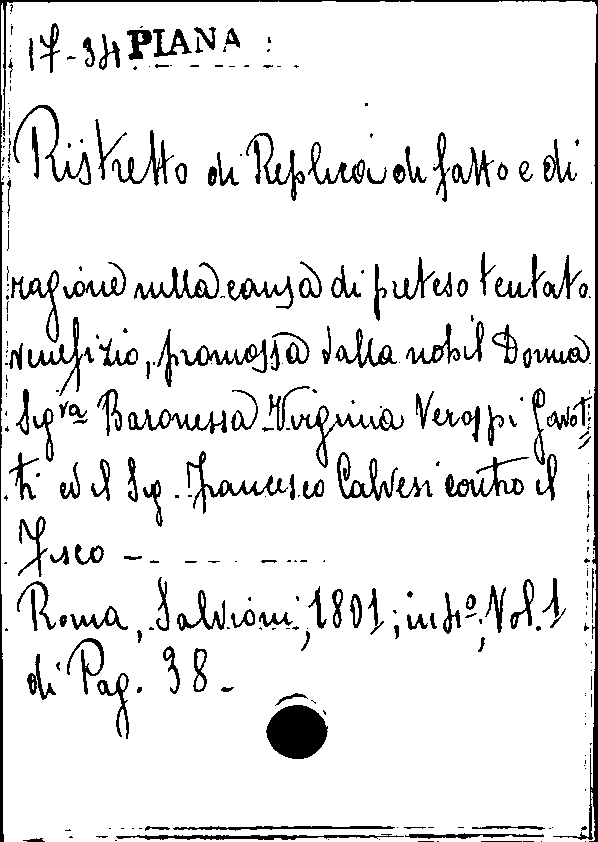 17-34 PIANA
Ristretto di Replica di fatto e di
ragione nella causa di preteso tentato
venefizio, promossa dalla nobil Donna
Sigra Baronessa Virginia Verospi Gavot
ti ed il Sig. Francesco Calvesi contro il
Fisco -
Roma, Salvioni, 1801; in 4º; Vol. 1
di Pag. 38-